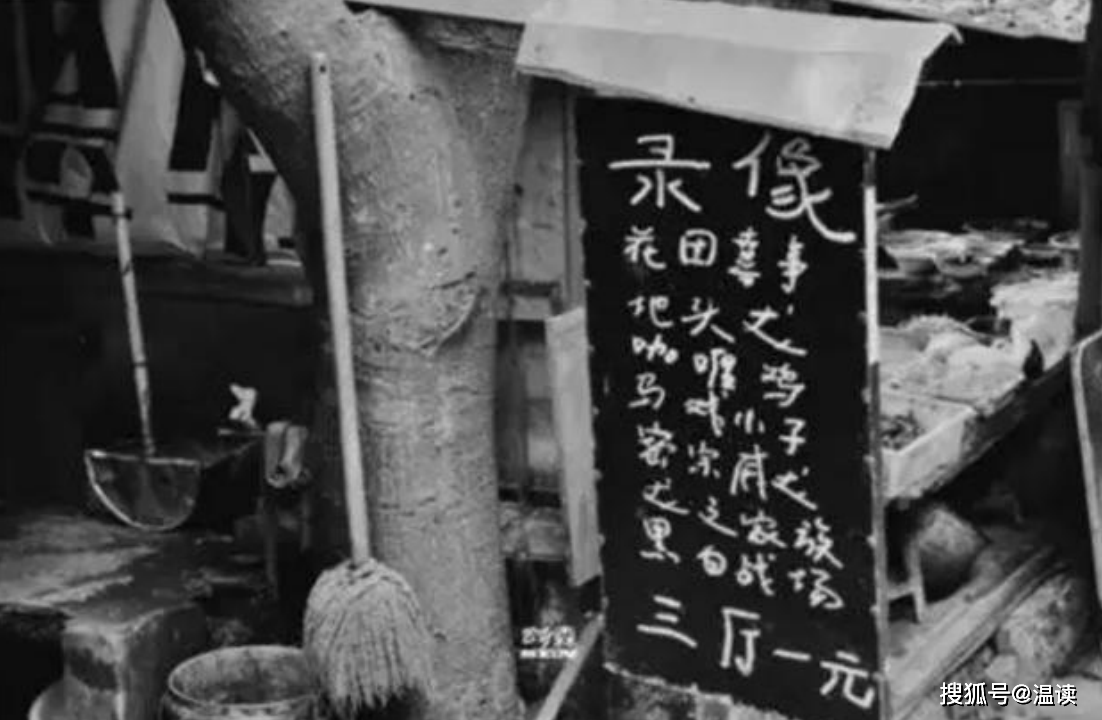 录像
花田喜事
地头龙
咖喱鸡
马戏小子
密宗威龙
龙之家族
黑白战场
三厅一元
搜狐号@温读